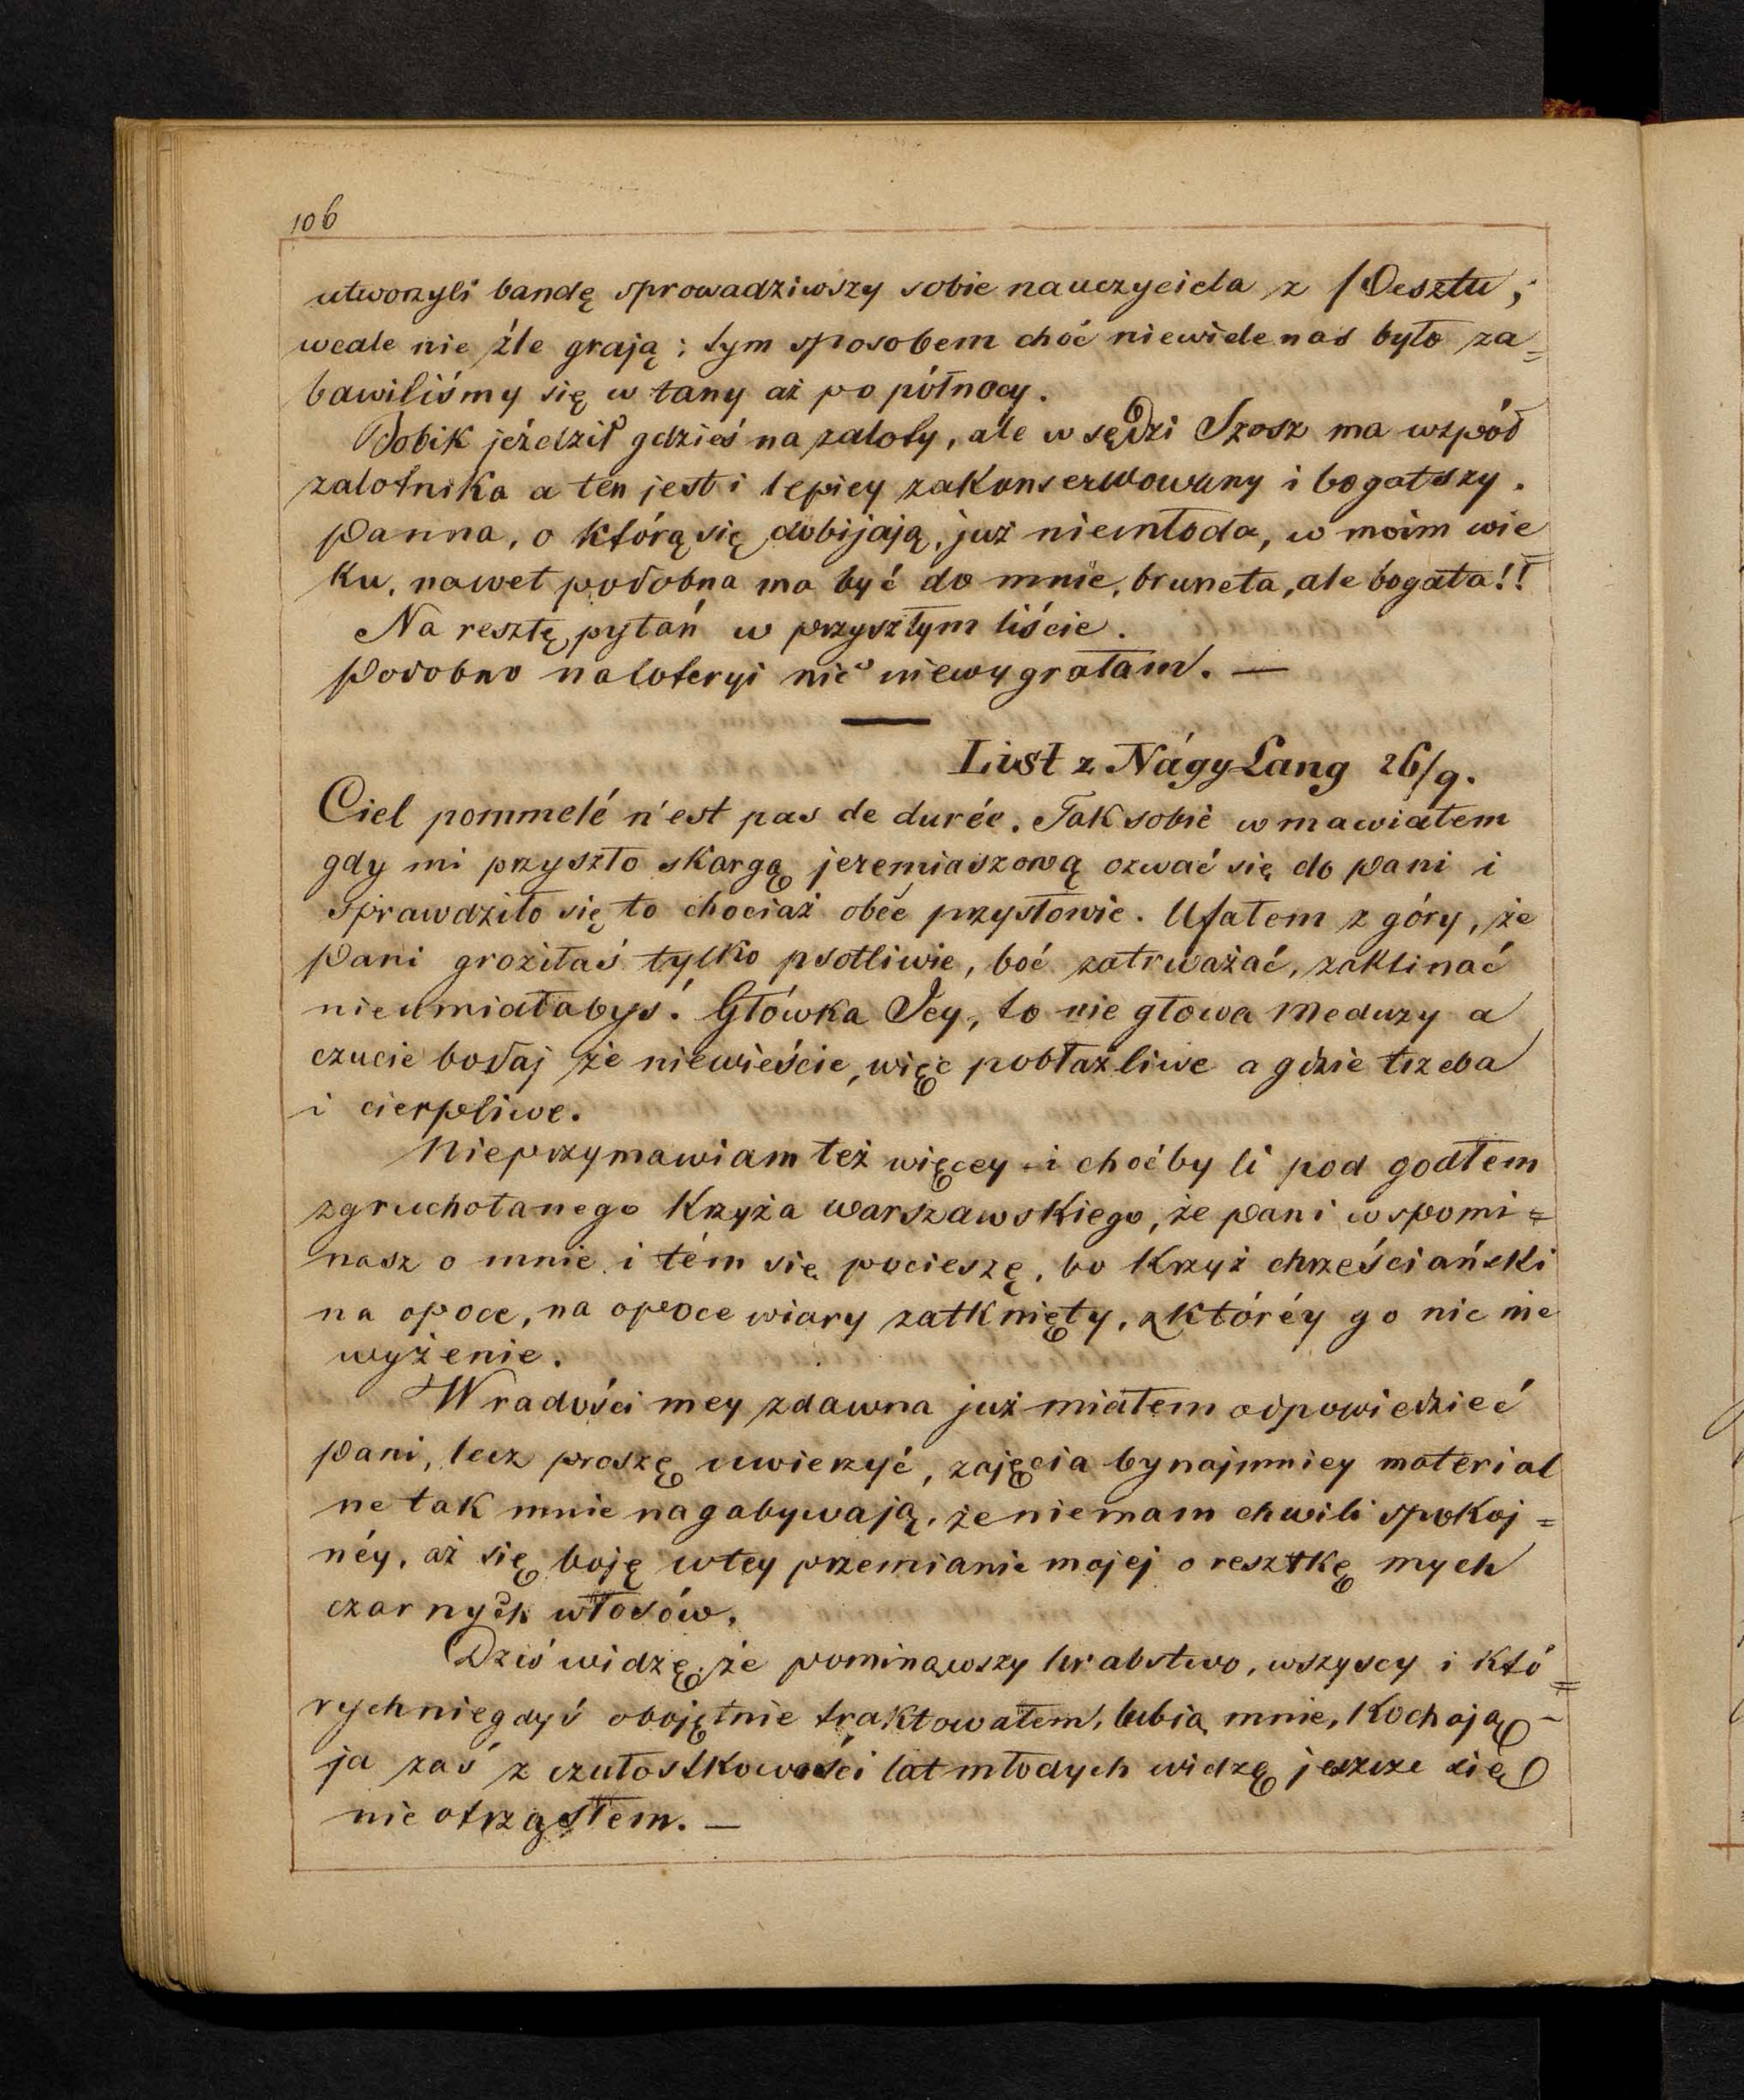 106
utworzyli bandę sprowadziwszy sobie nauczyciela z Pesztu;
wcale nie źle grają; tym sposobem choć niewiele nas było za=
bawiliśmy się w tany aż po północy.
Bobik jeździł gdzieś na zaloty, ale w sędzi Szosz ma wspód
zalotnika a ten jest i lepiey zakonserwowany i bogatszy.
Panna, o którą się dobijają, już niemłoda, w moim wie=
ku, nawet podobna ma być do mnie, bruneta, ale bogata!!
Na resztę pytań w przyszłym liście.
Podobno na loteryi nic niewygrałam. —
List z Nágy Láng 26/9.
Ciel pommelé n'est pas de durée. Tak sobie wmawiałem
gdy mi przyszło skargą jeremiaszową ozwać się do Pani i
sprawdziło się to chociaż obce przysłowie. Ufałem z góry, że
Pani groziłaś tylko psotliwie, boć zatrważać, zaklinać
nieumiałabyś. Główka Jey, to nie głowa Meduzy a
czucie bodaj że niewieście, więc pobłażliwe a gdzie trzeba
i cierpliwe.
Nieprzymawiam też więcey i choćby li pod godłem
zgruchotanego Krzyża warszawskiego, że Pani wspomi=
nasz o mnie i tém się pocieszę, bo Krzyż chrześciański
na opoce, na opoce wiary zatknięty, z któréy go nic nie
wyżenie.
W radości mey zdawna już miałem odpowiedzieć
Pani, lecz proszę uwierzyć, zajęcia bynajmniey material
ne tak mnie nagabywają, że niemam chwili spokoj=
néy, aż się boję w tey przemianie mojej o resztkę mych
czarnych włosów.
Dziś widzę, że pominąwszy hrabstwo, wszyscy i któ=
rych niegdyś obojętnie traktowałem, lubią mnie, kochają –
ja zaś z czułostkowości lat młodych widzę jeszcze się
nie otrząsłem. —